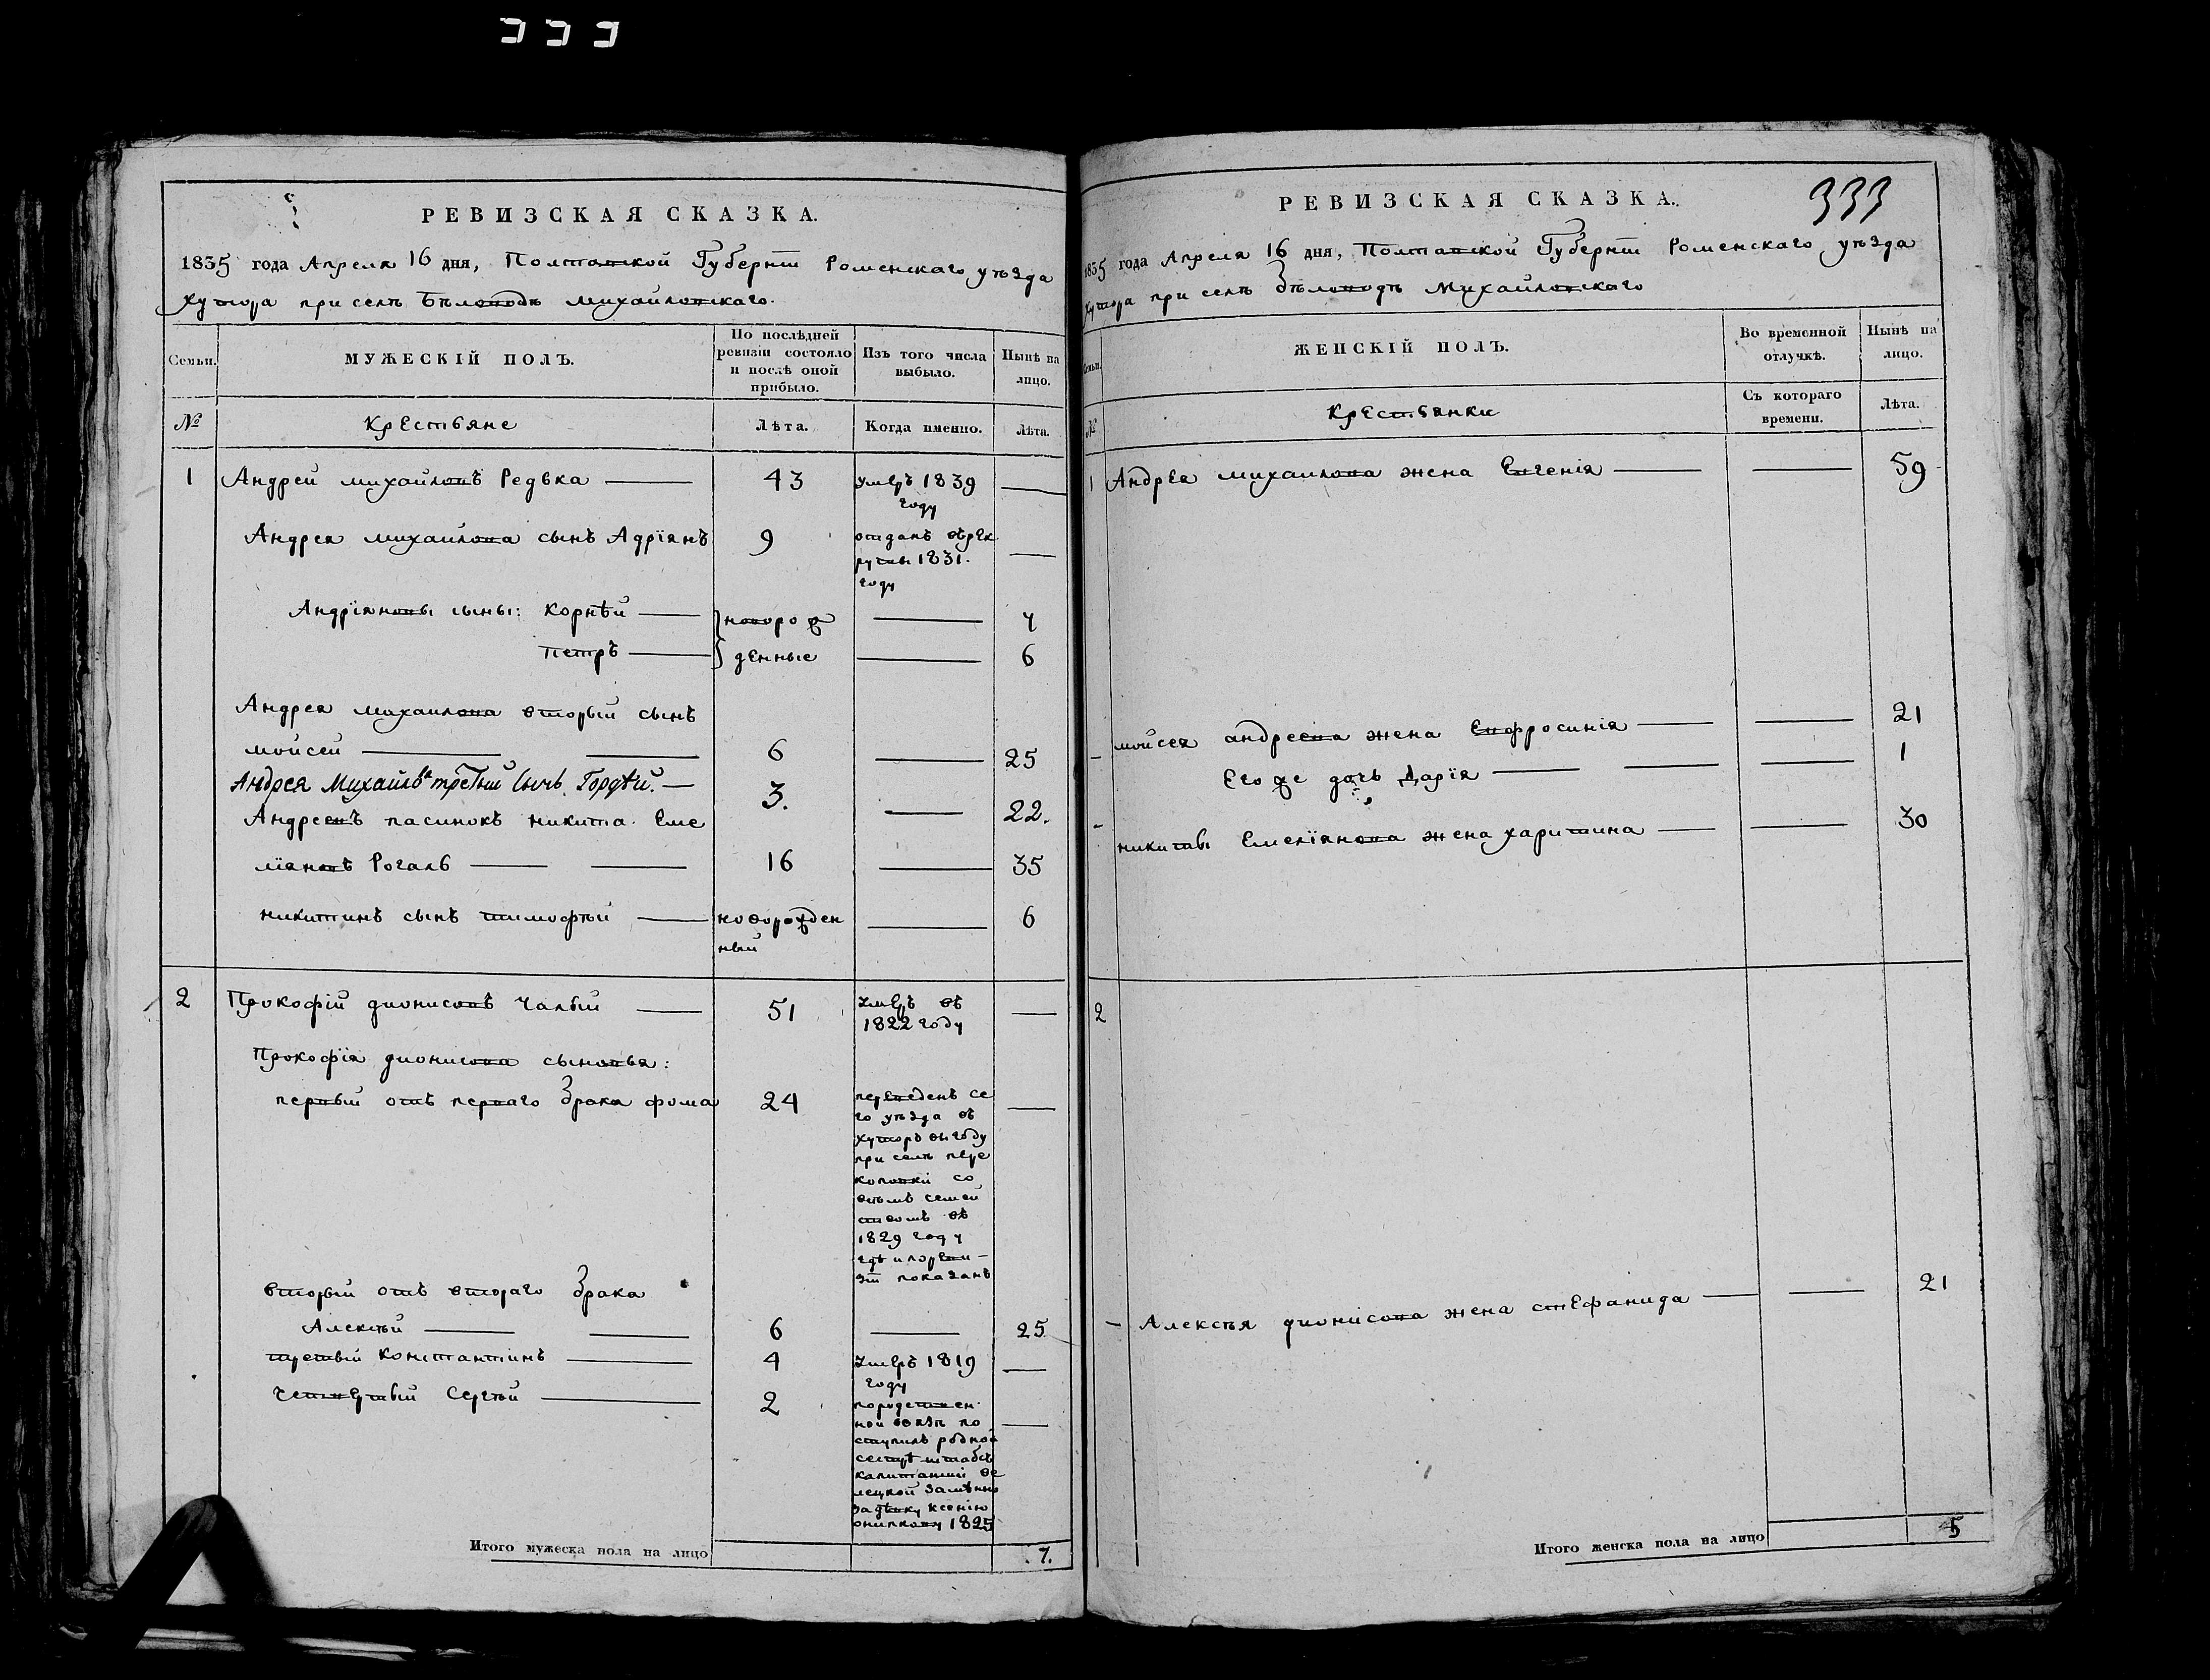 РЕВИЗСКАЯ СКАЗКА.
1835 года Апреля 16 дня, Полтавской Губернiи Роменскаго уѣзда
хутора при селѣ Бѣловодѣ Михайловскаго.
Семьи.
МУЖЕСКІЙ ПОЛЪ.
По послѣдней
ревизіи состояло
и послѣ оной
прибыло.
Изъ того числа
выбыло.
Нынѣ на
лицо.
№
Крестьяне
Лѣта.
Когда именно.
Лѣта.
1 Андрей михайловъ Редька 43 умеръ 1839
году
Андрея михайлова сынъ Адріянъ 9 отданъ въ рек
руты 1831.
году
Андріяновы сыны: Корнѣй новорож 4
Петръ денные 6
Андрея михайлова вторый сынъ
мойсей 6 25
Андрея Михайлова третий сынъ Гордѣй. 3. 22.
Андреевъ пасинокъ никита Еме
ліяновъ Рогаль 16 35
никитинъ сынъ тимофѣй новорожден 6
ный
2 Прокофій дионисовъ Чалый 51 умеръ въ
1822 году
Прокофія дионисова сыновья:
первый отъ перваго брака фома 24 переведенъ се
го уѣзда въ
хуторъ
при селѣ пере
коповки со
всѣмъ семей
ствомъ въ
1829 году
где и по реви
зіи показанъ
вторый отъ втораго брака
Алексѣй 6 25
третьій Константинъ 4 умеръ 1819
году
четвертый Сергѣй 2
ной по
ступилъ родной
сестрѣ штабсъ
капитанши Ве
лецкой
за дѣвку ксенію
1825
Итого мужеска пола на лицо 7.
РЕВИЗСКАЯ СКАЗКА.
333
1835 года Апреля 16 дня, Полтавской Губернiи Роменскаго уѣзда
хутора при селѣ Бѣловодѣ Михайловскаго
Семьи.
ЖЕНСКІЙ ПОЛЪ.
Во временной
отлучкѣ.
Нынѣ на
лицо.
№
Крестьянки
Съ котораго
времени.
Лѣта.
1 Андрея михайлова жена Евгенія 59
мойсея андреева жена Евфросинія 21
Его же дочь Дарія 1
никиты Емеліянова жена харитина 30
2
Алексѣя дионісова жена стефанида 21
Итого женска пола на лицо 5